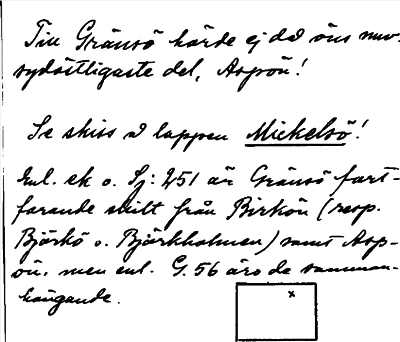 Till Gränsö hörde ej då öns nuv.
sydöstligaste del, Aspön!
Se skiss å lappen Mickelsö!
Enl. ek o. Sj: 251 är Gränsö fort-
farande skilt från Birkön (resp.
Björkö o. Björkholmen) samt Asp-
ön, men enl. G. 56 äro de samman-
hängande.
x